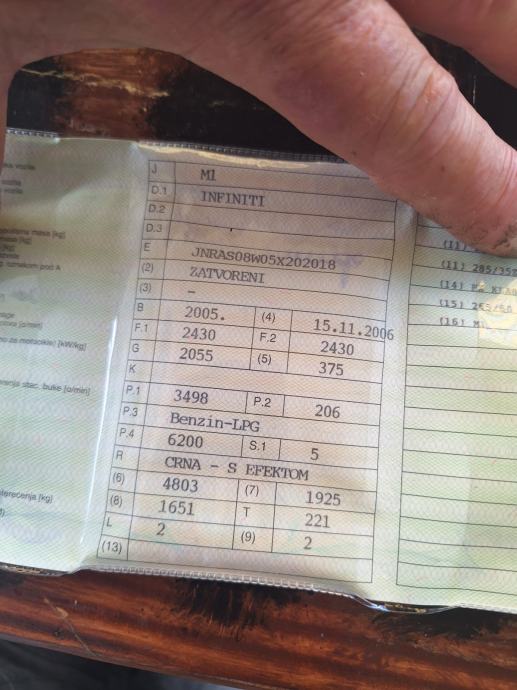 J M1
D.1 INFINITI
D.2
D.3
E JNRAS08W05X202018
(2) ZATVORENI
(3) -
B 2005. (4) 15.11.2006
F.1 2430 F.2 2430
G 2055 (5) 375
K
P.1 3498 P.2 206
P.3 Benzin-LPG
P.4 6200 S.1 5
R CRNA - S EFEKTOM
(6) 4803 (7) 1925
(8) 1651 T 221
L 2 (9) 2
(13)
vozila
vozila
masa [kg]
[kg]
oznakom pod A
[o/min]
za motocikle) [kW/kg]
stac. buke [o/min]
[kg]
(11)
(11) 285/35
(14)
(15)
(16)